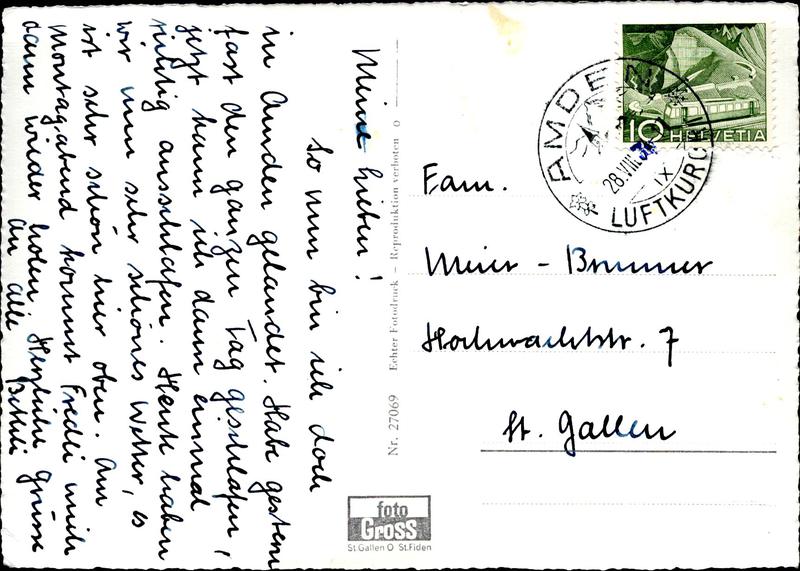 Meine lieben!
So nun bin ich doch
in Amden gelandet. Habe gestern
fast den ganzen Tag geschlafen,
jetzt kann ich dann einmal
richtig ausschlafen. Heute haben
wir nun sehr schönes Wetter, es
ist sehr schön hier oben. Am
Montag abend kommt Fredli mich
dann wieder holen. Herzliche Grüsse
an alle Bethli
Nr. 27069 Echter Fotodruck – Reproduktion verboten
foto
Gross
St.Gallen O St.Fiden
10 HELVETIA
AMDEN
28.VIII.
IX
LUFTKURORT
Fam.
Meier - Brunner
Hochwachtstr. 7
St. Gallen